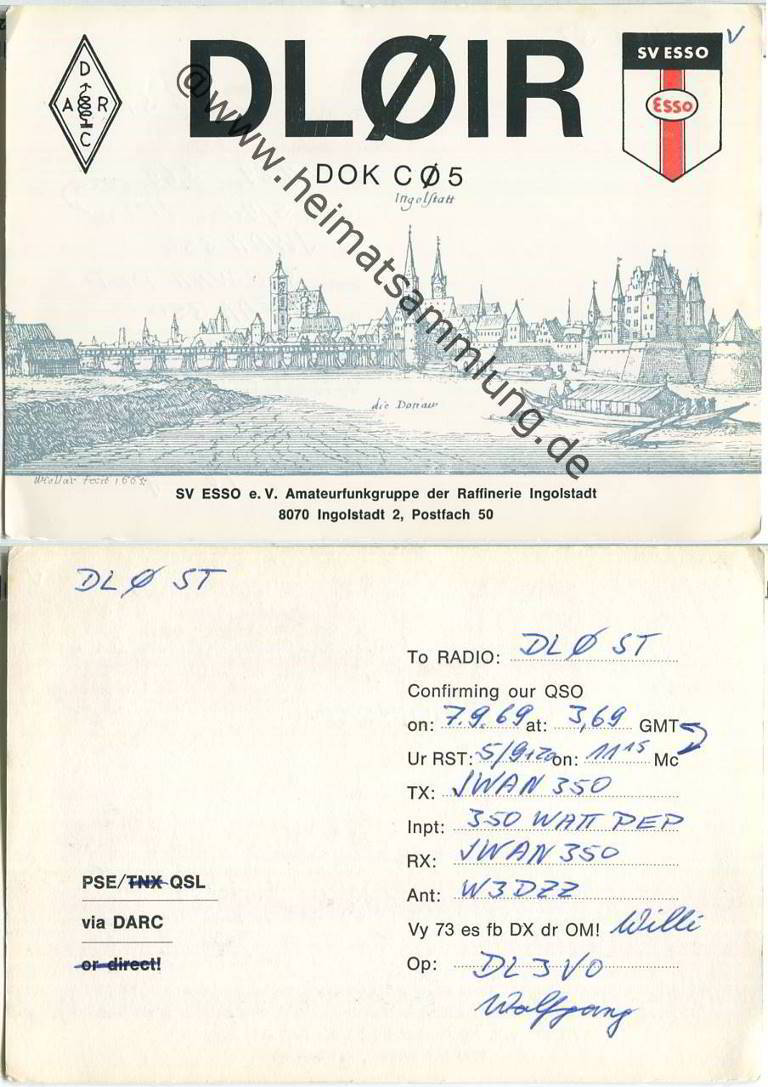 DLØIR
D
A R
C
SV ESSO
Esso
V
DOK CØ5
Ingolstatt
@www.heimatsammlung.de
die Donaw
SV ESSO e. V. Amateurfunkgruppe der Raffinerie Ingolstadt
8070 Ingolstadt 2, Postfach 50
DLØST
To RADIO: DLØST
Confirming our QSO
on: 7.9.69 at: 3,69 GMT
Ur RST: 5/9+20 on: 11 15 Mc
TX: SWAN 350
Inpt: 350 WATT PEP
RX: SWAN 350
PSE/TNX QSL
Ant: W3DZZ
via DARC
Vy 73 es fb DX dr OM! Willi
or direct!
Op: DL3VO
Wolfgang